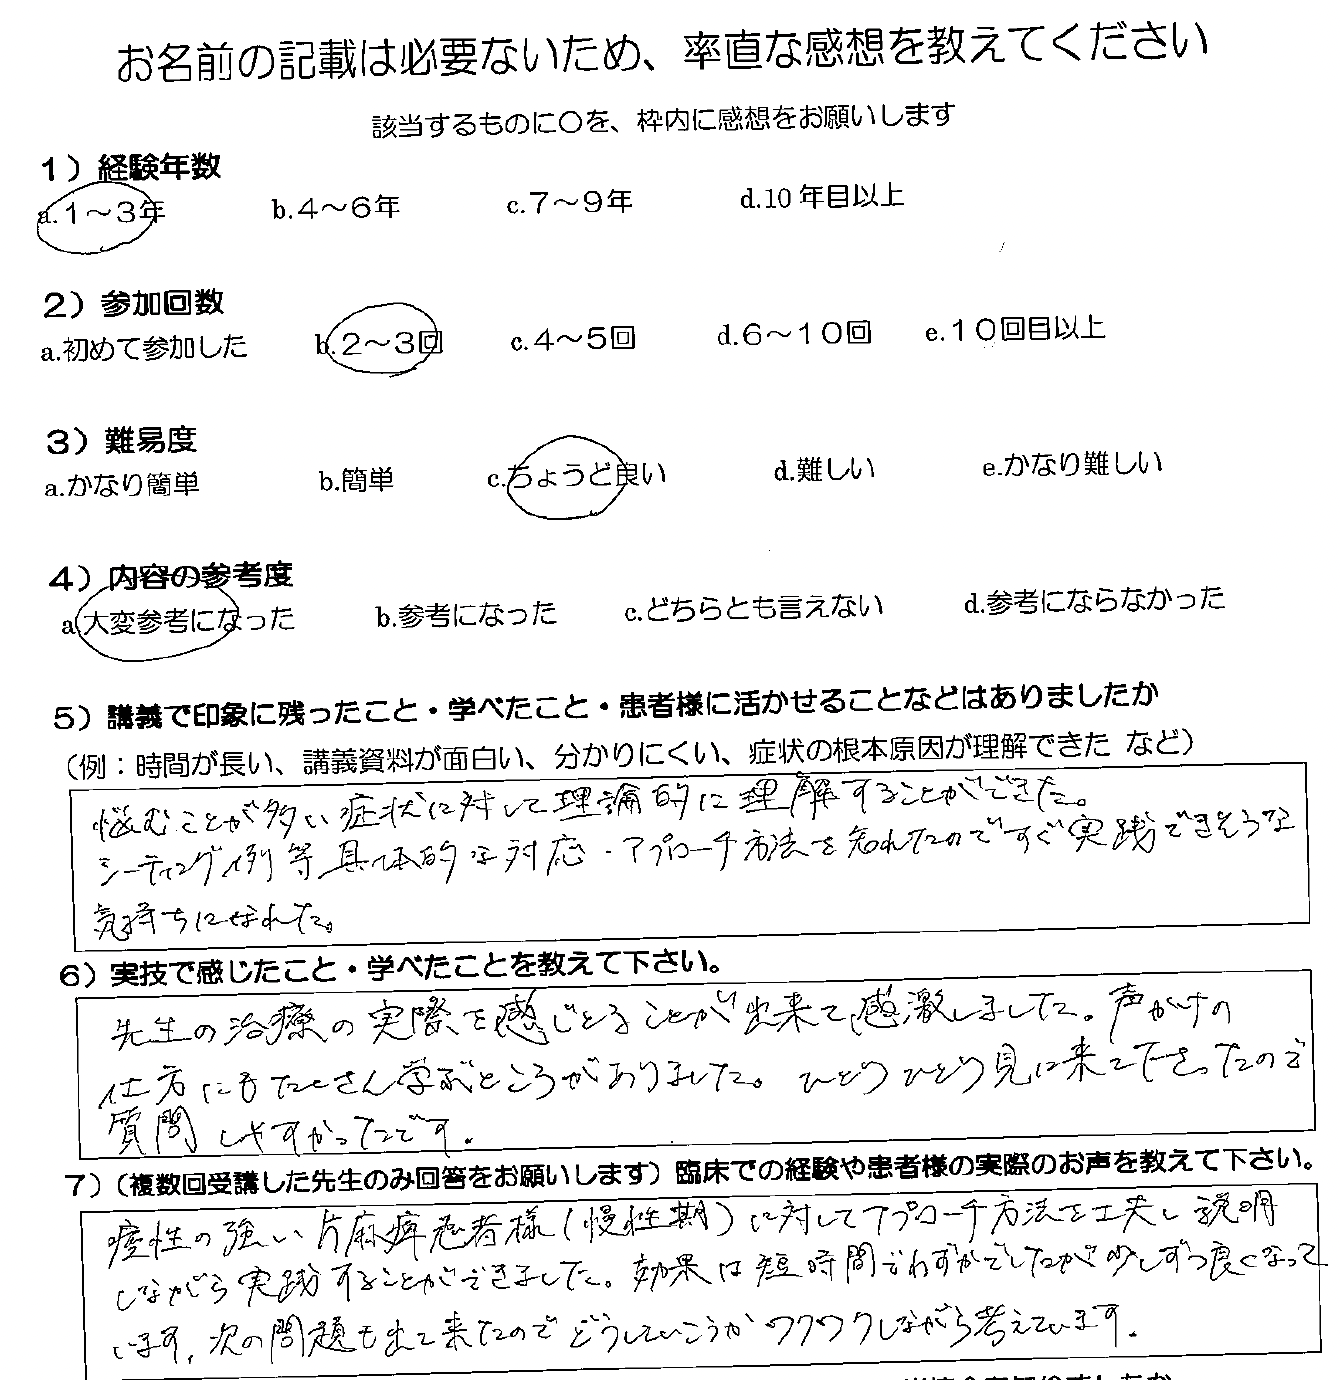 お名前の記載は必要ないため、率直な感想を教えてください
該当するものに○を、枠内に感想をお願いします
1）経験年数
a.1～3年 b.4～6年 c.7～9年 d.10年目以上
2）参加回数
a.初めて参加した b.2～3回 c.4～5回 d.6～10回 e.10回目以上
3）難易度
a.かなり簡単 b.簡単 c.ちょうど良い d.難しい e.かなり難しい
4）内容の参考度
a.大変参考になった b.参考になった c.どちらとも言えない d.参考にならなかった
5）講義で印象に残ったこと・学べたこと・患者様に活かせることなどはありましたか
（例：時間が長い、講義資料が面白い、分かりにくい、症状の根本原因が理解できた など）
悩むことが多い症状に対して理論的に理解することができた。
シーティング例等具体的な対応・アプローチ方法を知れたのですぐ実践できそうな
気持ちになれた。
6）実技で感じたこと・学べたことを教えて下さい。
先生の治療の実際を感じとることが出来て感激しました。声がけの
仕方にもたくさん学ぶところがありました。ひとりひとり見に来て下さったので
質問しやすかったです。
7）（複数回受講した先生のみ回答をお願いします）臨床での経験や患者様の実際のお声を教えて下さい。
痙性の強い片麻痺患者様（慢性期）に対してアプローチ方法を工夫し説明
しながら実践することができました。効果は短時間でわずかでしたが少しずつ良くなって
います。次の問題も出て来たのでどうしていこうかワクワクしながら考えています。